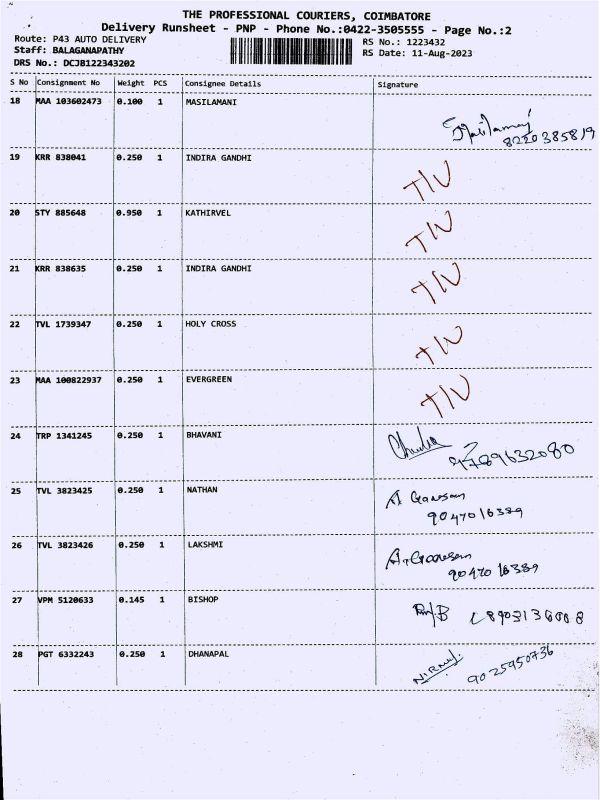 THE PROFESSIONAL COURIERS, COIMBATORE
Delivery Runsheet - PNP - Phone No.:0422-3505555 - Page No.:2
Route: P43 AUTO DELIVERY
RS No.: 1223432
Staff: BALAGANAPATHY
RS Date: 11-Aug-2023
DRS No.: DCJB122343202
S No Consignment No Weight PCS Consignee Details Signature
18 MAA 103602473 0.100 1 MASILAMANI
Masilamani
8220385819
19 KRR 838041 0.250 1 INDIRA GANDHI
TIV
20 STY 885648 0.950 1 KATHIRVEL
TIV
21 KRR 838635 0.250 1 INDIRA GANDHI
TIV
22 TVL 1739347 0.250 1 HOLY CROSS
TIV
23 MAA 100822937 0.250 1 EVERGREEN
TIV
24 TRP 1341245 0.250 1 BHAVANI
9789632080
25 TVL 3823425 0.250 1 NATHAN
A Ganesan
9047016389
26 TVL 3823426 0.250 1 LAKSHMI
A. Ganesan
9047016389
27 VPM 5120633 0.145 1 BISHOP
28 PGT 6332243 0.250 1 DHANAPAL
9025950736